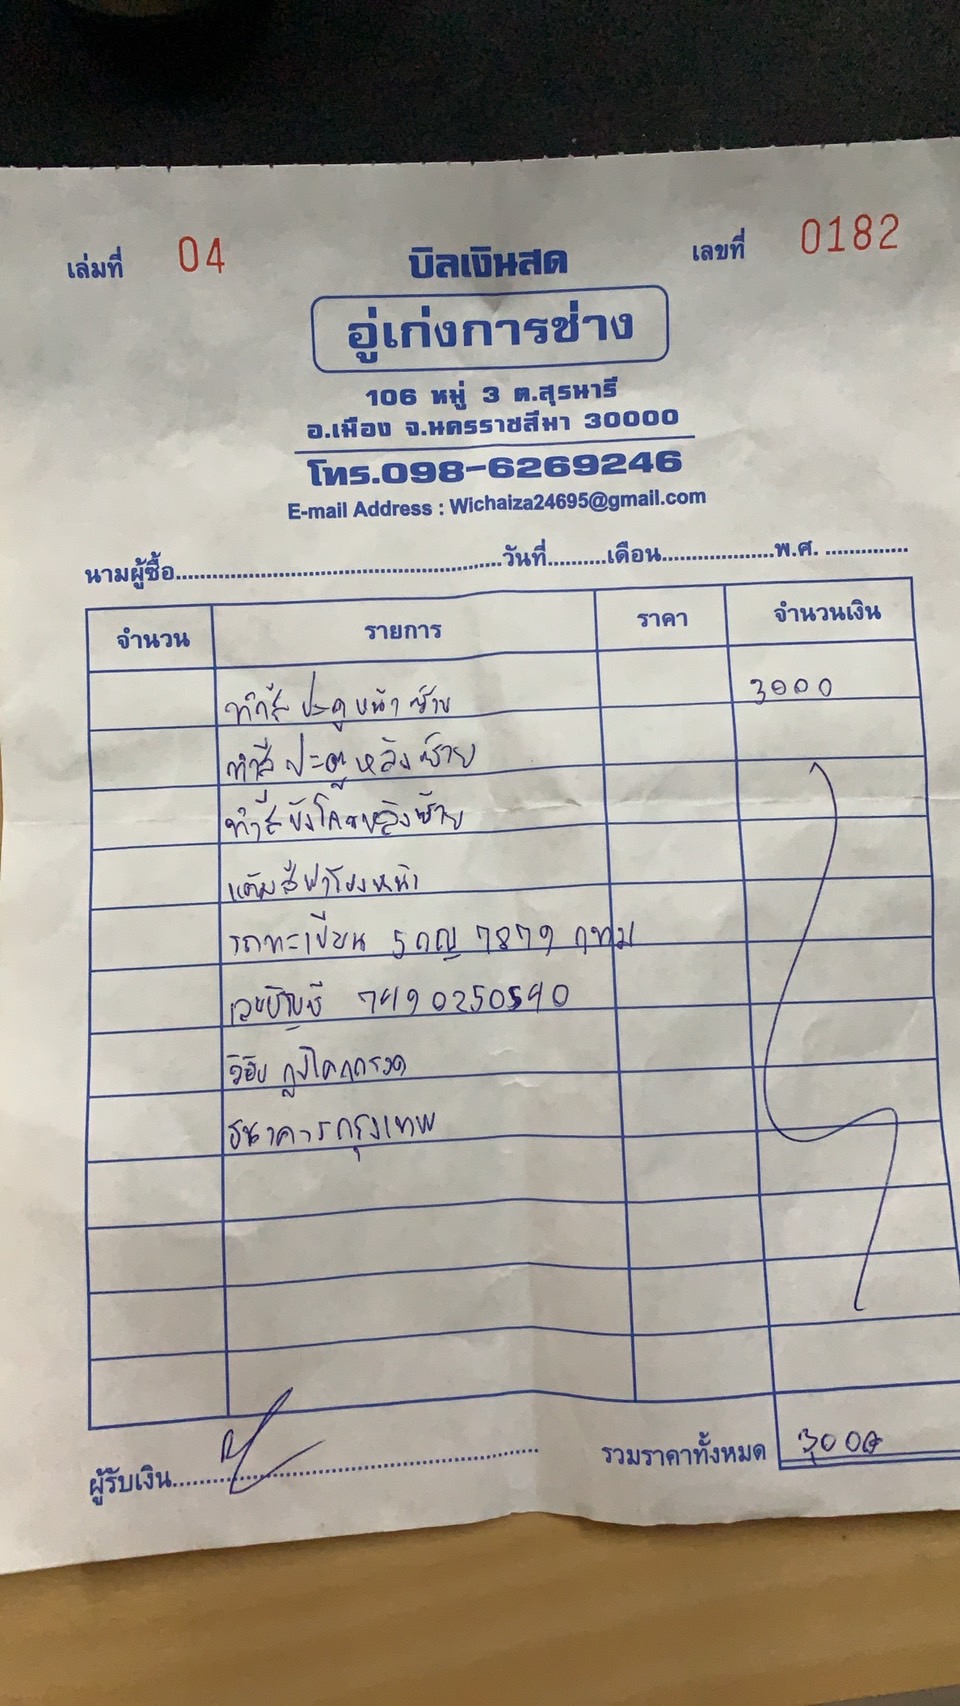 เล่มที่ 04 บิลเงินสด เลขที่ 0182
อู่เก่งการช่าง
106 หมู่ 3 ต.สุรนารี
อ.เมือง จ.นครราชสีมา 30000
โทร.098-6269246
E-mail Address : Wichaiza24695@gmail.com
นามผู้ซื้อ วันที่ เดือน พ.ศ.
จำนวน รายการ ราคา จำนวนเงิน
ทำสี ประตู หน้า ซ้าย 3000
ทำสี ประตู หลัง ซ้าย
ทำสี บังโคลนหลังซ้าย
แต้มสีฝากระโปรงหน้า
รถทะเบียน 5กญ 7879 กทม
เลขบัญชี 7490250540
วิชัย
ธนาคารกรุงเทพ
ผู้รับเงิน รวมราคาทั้งหมด 3000